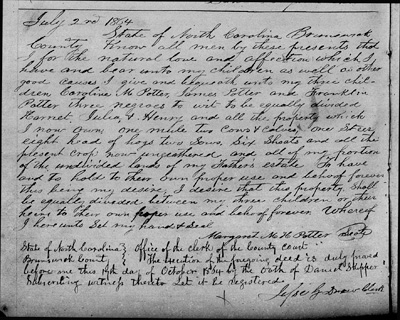 July 2nd 1854
State of North Carolina Brunswick
County Know all men by these presents that
I for the natural love and affection which I
have and bear unto my children as well as other
good causes I give and bequeath unto my three chil-
dren Caroline M Potter James Potter and Franklin
Potter three negroes to wit to be equally divided
Harriet, Julia, & Henry and all the property which
I now own, one mule two Cows & Calves, one Steer
eight head of hogs two Sows, Six Shoats and all the
present Crop now ungathered and all of my portion
of the undivided land of my father's estate To have
and to hold to their own proper use and behoof forever
this being my desire, I desire that this property Shall
be equally divided between my three children or their
heirs to their own proper use and behoof forever Whereof
I here unto Set my hand & Seal
Margaret M Potter Seal
State of North Carolina } Office of the Clerk of the County Court
Brunswick County } The execution of the foregoing deed is duly proved
before me this 19th day of October 1854 by the oath of Daniel Skipper
Subscribing witness thereto Let it be registered
Jesse G Drew Clerk